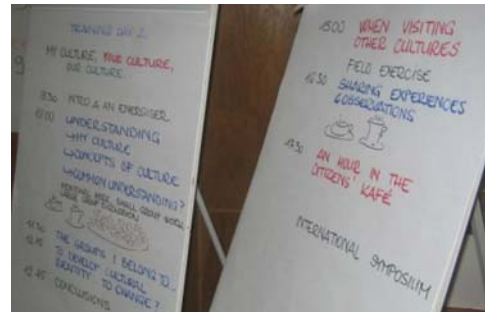 TRAINING DAY 2
MY CULTURE, YOUR CULTURE,
OUR CULTURE
9:30 INTRO & AN ENERGISER
10:00 UNDERSTANDING
↳MY CULTURE
↳CONCEPTS OF CULTURE
↳COMMON UNDERSTANDING?
SMALL GROUP WORK,
LARGE GROUP DISCUSSION
THE GROUPS I BELONG TO...
TO DEVELOP CULTURAL
IDENTITY TO CHANGE?
12:45 CONCLUSIONS
15:00 WHEN VISITING
OTHER CULTURES
FIELD EXERCISE
16:30 SHARING EXPERIENCES
& OBSERVATIONS
17:30 AN HOUR IN THE
CITIZENS' KAFÉ
INTERNATIONAL SYMPOSIUM